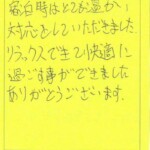 宿泊時はとても温かい
対応をしていただきました
リラックスできて快適に
過ごす事ができました
ありがとうございます。